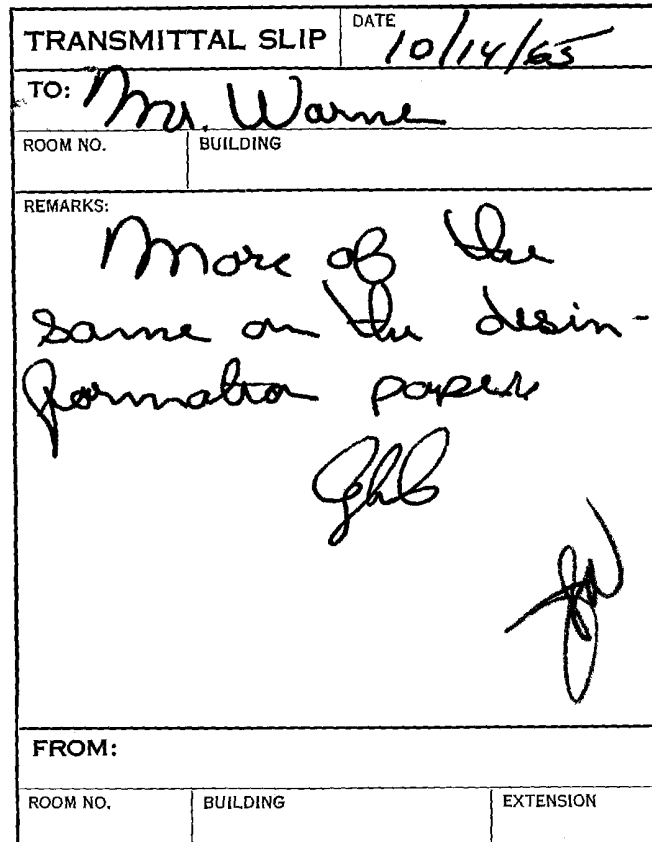 TRANSMITTAL SLIP
DATE
10/14/65
TO: Mr. Warne
ROOM NO.
BUILDING
REMARKS:
More of the
same on the desin-
formation papers
FROM:
ROOM NO.
BUILDING
EXTENSION